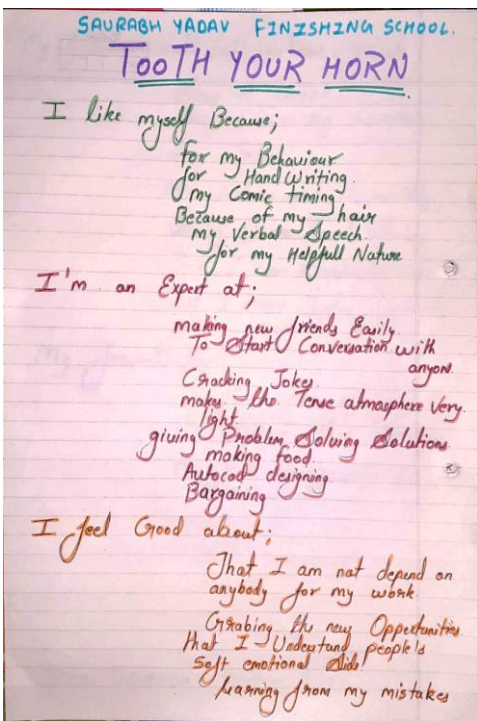 SAURABH YADAV FINISHING SCHOOL.
TOOTH YOUR HORN
I like myself Because;
for my Behaviour
for Hand Writing
my Comic timing
Because of my hair
my Verbal Speech.
for my Helpfull Nature
I'm an Expert at;
making new friends Easily.
To Start Conversation with
anyone.
Cracking Jokes.
makes the Tense atmosphere very
light.
giving Problem Solving Solutions.
making food
Autocad designing
Bargaining
I feel Good about;
That I am not depend on
anybody for my work.
Grabing the new Oppertunities.
that I Understand people's
Soft emotional Side
Learning from my mistakes